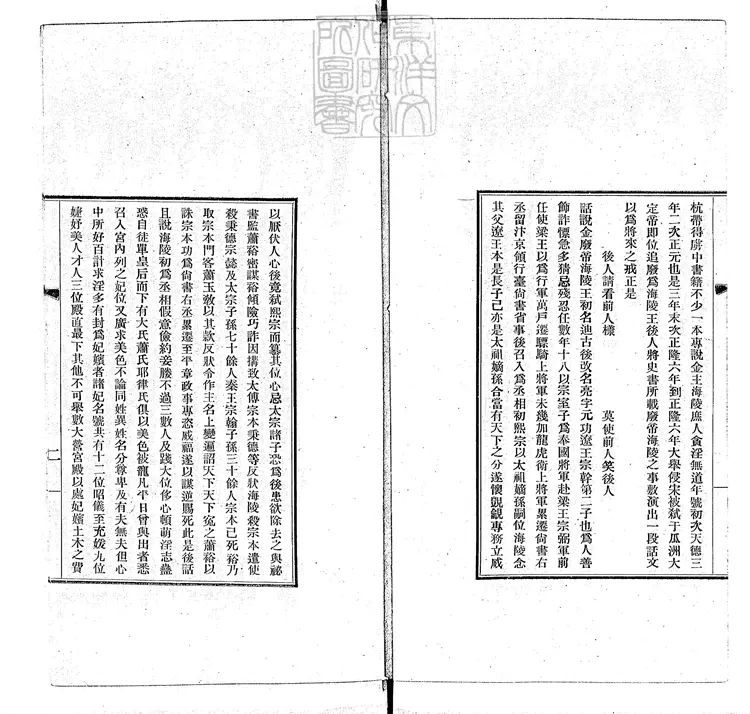 杭帶得虜中書籍不少一本專說金主海陵庶人貪淫無道年號初次天德三
年二次正元也是三年末次正隆六年到正隆六年大舉侵宋被弒于瓜洲大
定帝即位追廢爲海陵王後人將史書所載廢帝海陵之事敷演出一段話文
以爲將來之戒正是
後人請看前人樣 莫使前人笑後人
話說金廢帝海陵王初名迪古後改名亮字元功遼王宗幹第二子也爲人善
飾詐慓急多猜忌殘忍任數年十八以宗室子爲奉國將軍赴梁王宗弼軍前
任使梁王以爲行軍萬戶遷驃騎上將軍未幾加龍虎衛上將軍累遷尙書右
丞留汴京領行臺尙書省事後召入爲丞相初熙宗以太祖嫡孫嗣位海陵念
其父遼王本是長子己亦是太祖嫡孫合當有天下之分遂懷覬覦專務立威
以厭伏人心後竟弒熙宗而篡其位心忌太宗諸子恐爲後患欲除去之與祕
書監蕭裕密謀裕傾險巧詐因搆致太傅宗本秉德等反狀海陵殺宗本遣使
殺秉德宗懿及太宗子孫七十餘人秦王宗翰子孫三十餘人宗本已死裕乃
取宗本門客蕭玉敎以其款反狀令作主名上變遍詔天下天下冤之蕭裕以
誅宗本功爲尙書右丞累遷至平章政事專恣威福遂以謀逆賜死此是後話
且說海陵初爲丞相假意儉約妾媵不過三數人及踐大位侈心頓萌淫志蠱
惑自徒單皇后而下有大氏蕭氏耶律氏俱以美色被寵凡平日曾與出者悉
召入宮內列之妃位又廣求美色不論同姓異姓名分尊卑及有夫無夫但心
中所好百計求淫多有封爲妃嬪者諸妃名號共有十二位昭儀至充媛九位
婕妤美人才人三位殿直最下其他不可舉數大營宮殿以處妃嬪土木之費